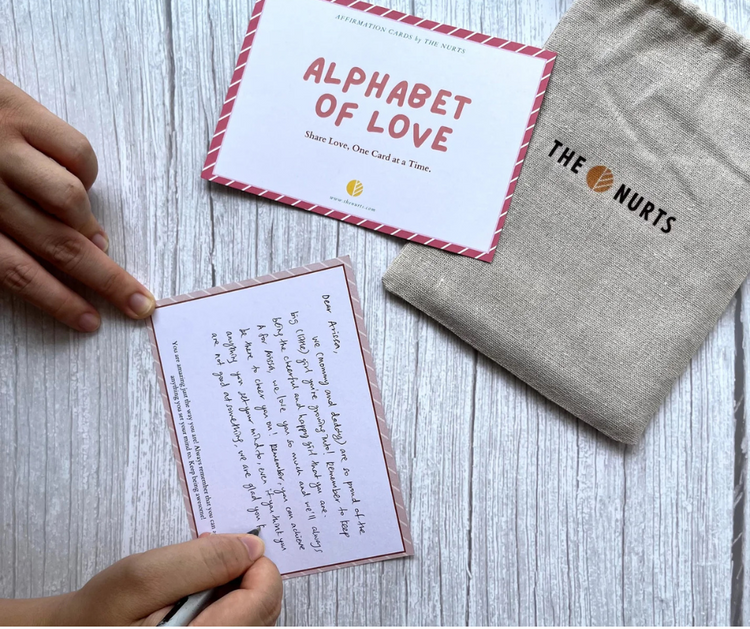 AFFIRMATION CARDS by THE NURTS
ALPHABET
OF LOVE
Share Love, One Card at a Time.
www.thenurts.com
THE NURTS
Dear Arissa,
we (mommy and daddy) are so proud of the
big (little) girl you're growing into! Remember to keep
being the cheerful and happy girl that you are.
A for Arissa, we love you so much and we'll always
be there to cheer you on! Remember, you can achieve
anything you set your mind to, even if you think you
are not good at something, we are glad you
You are amazing just the way you are! Always remember that you can
anything you set your mind to. Keep being awesome!